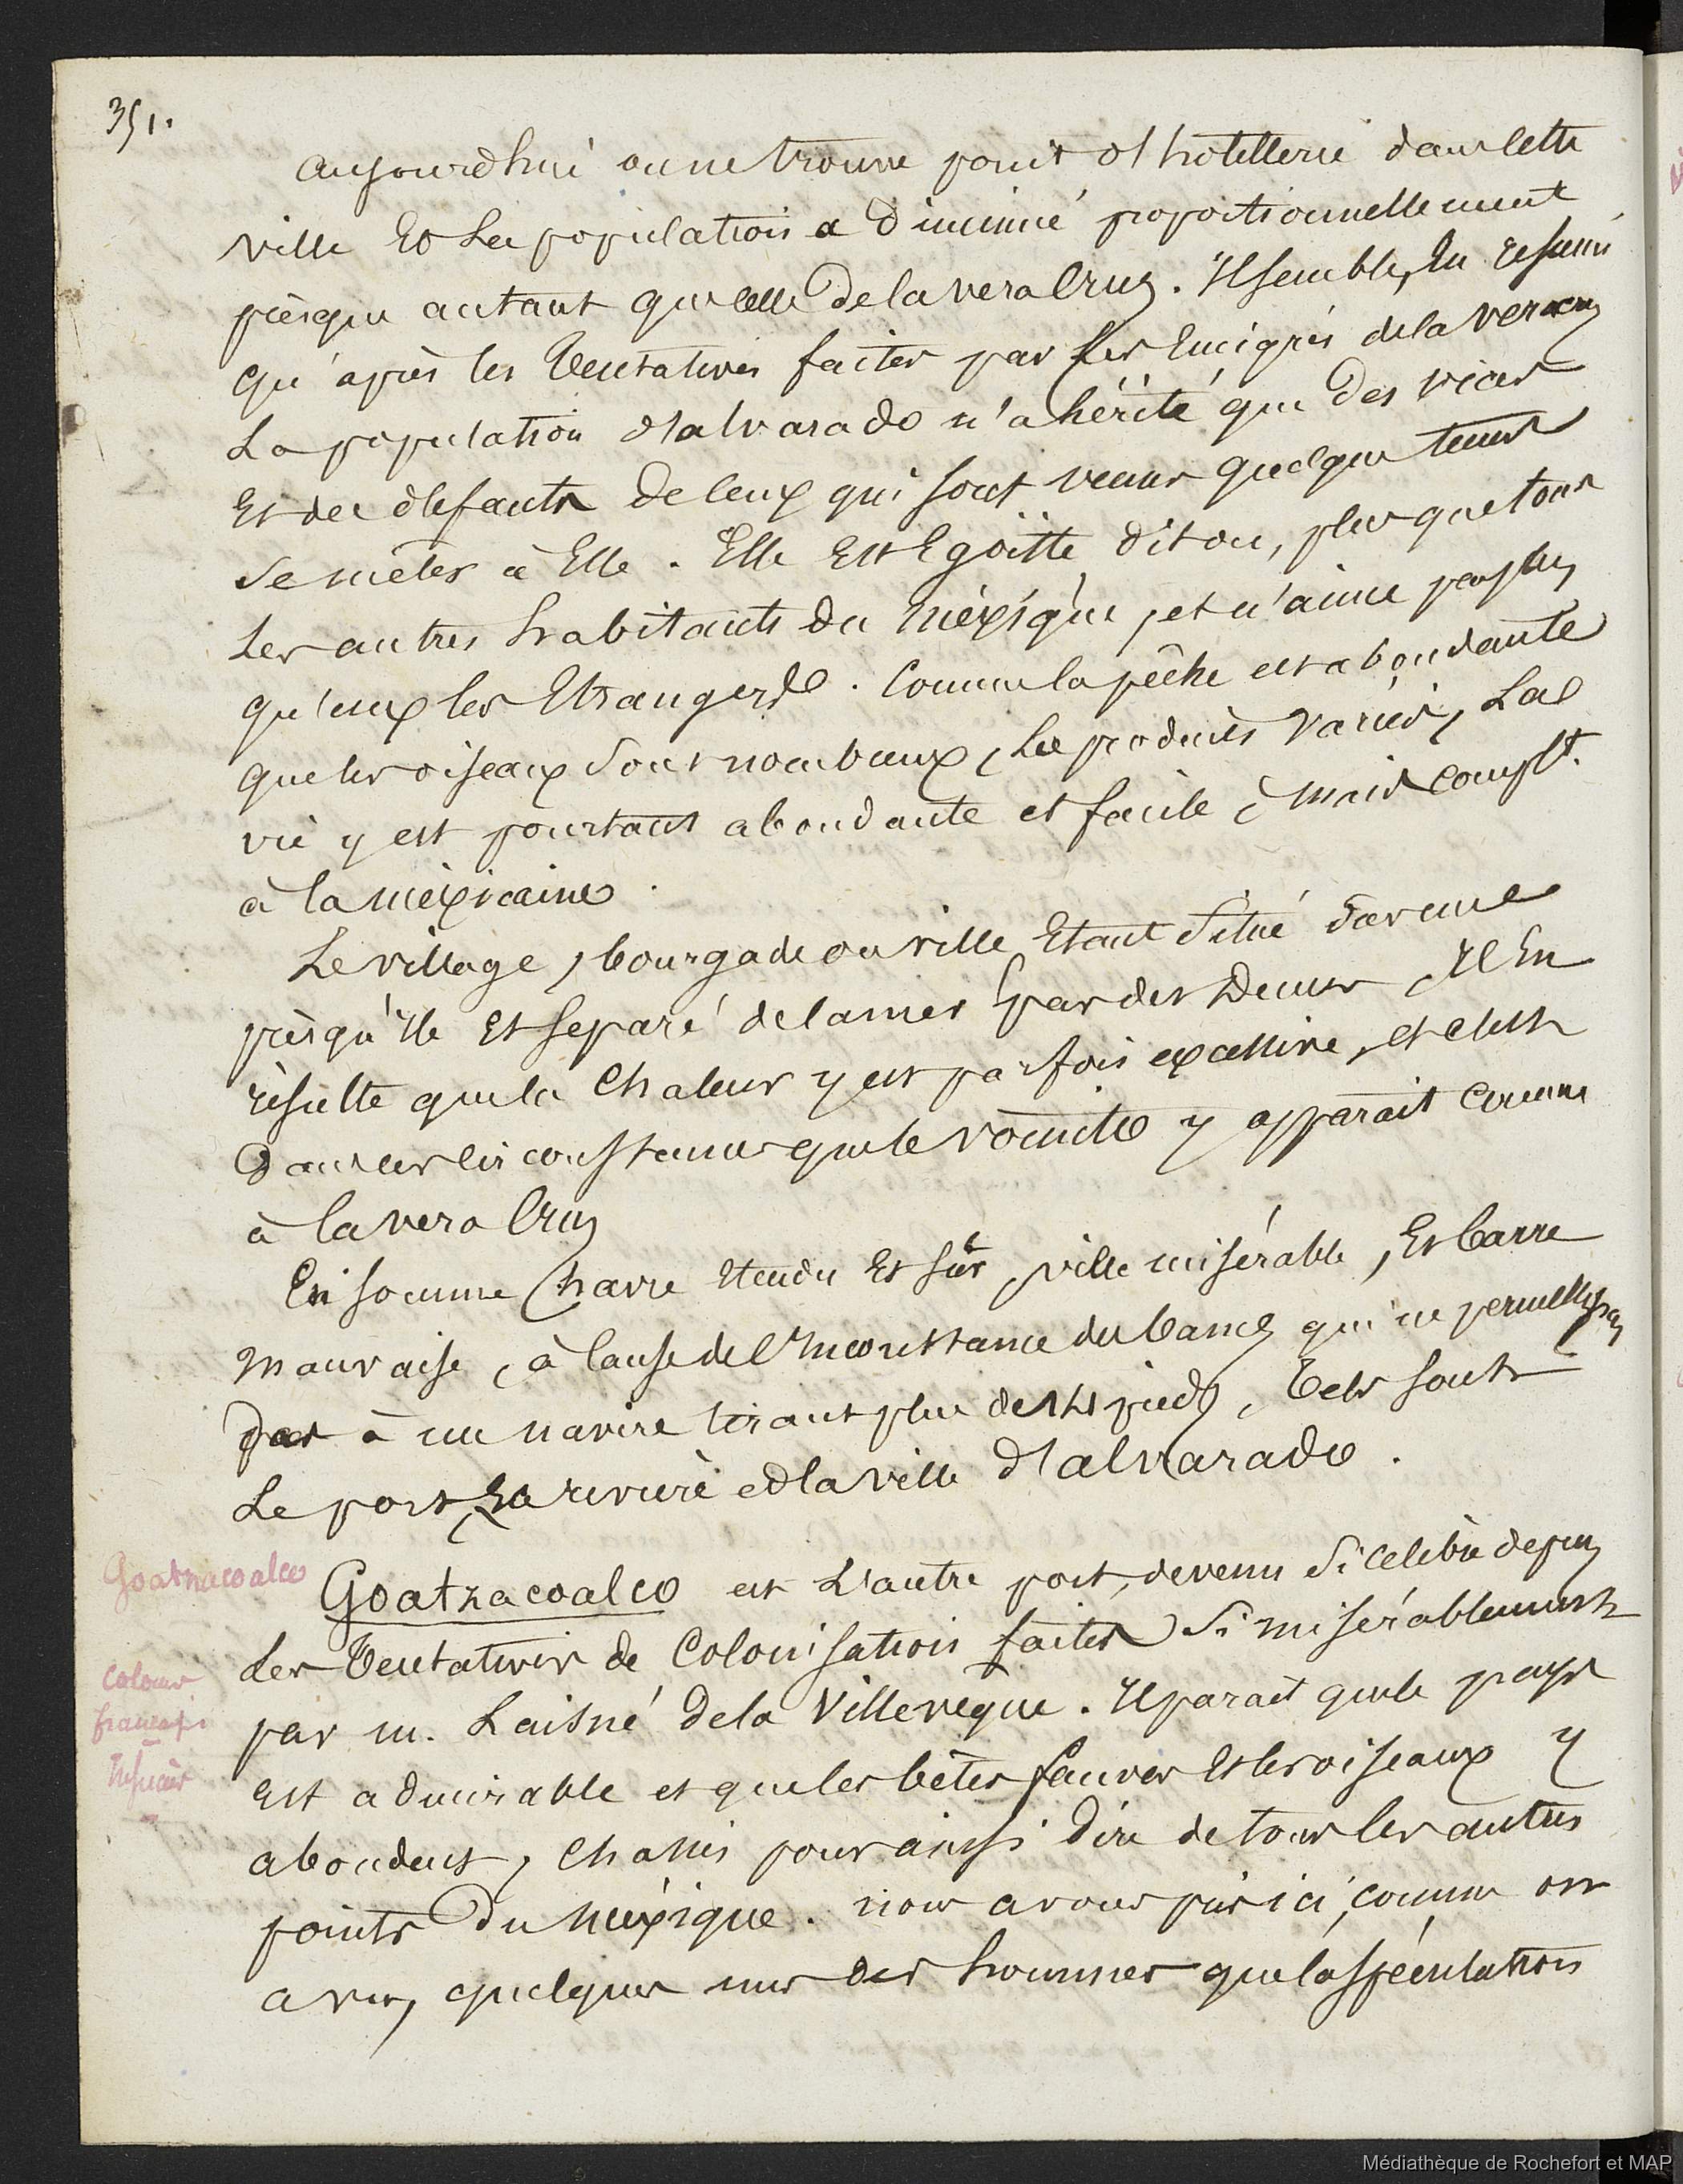 351.
aujourd'hui on ne trouve point d'hotellerie dans cette
ville Et La population a diminué proportionnellement
presque autant que celle de la vera Cruz. Il semble, En resumé
qu'après les Tentatives faites par les Emigrés de la vera cruz
La population d'alvarado n'a hérité que des vices
Et des defauts de ceux qui sont venus quelque tems
se mêler à Elle. Elle Est Egoïste, dit on, plus que tous
Les autres habitants du Méxique, et n'aime pas plus
qu'eux les Etrangers. Comme la pêche est abondante
que les oiseaux sont nombreux, Les produits variés, La
vie y est pourtant abondante et facile, mais
à la méxicaine.
Le village, bourgade ou ville, Etant situé sur une
presqu'Ile Et separé de la mer par des Dunes, Il En
résulte que la Chaleur y est parfois excessive, et c'est
Dans ces circonstances que le vomito y apparait comme
à la vera Cruz
En somme, havre Etendu Et sûr, ville misérable, Et barre
mauvaise, à cause de l'Inconstance des bancs qui ne permettent pas
à un navire tirant plus de pieds, Tels sont
Le port, La rivière et la ville d'alvarado.
Goatzacoalco
Goatzacoalco est L'autre port, devenu si celèbre depuis
Les Tentatives de Colonisation faites si misérablement
colons
français
par m. Laisné de la Villevêque. Il parait que le pays
Est admirable et que les bêtes fauves Et les oiseaux y
abondent, chassés pour ainsi dire de tous les autres
points du Méxique. nous avons pris ici, comme on
a vu, quelques uns des hommes que la spéculation
Médiathèque de Rochefort et MAP